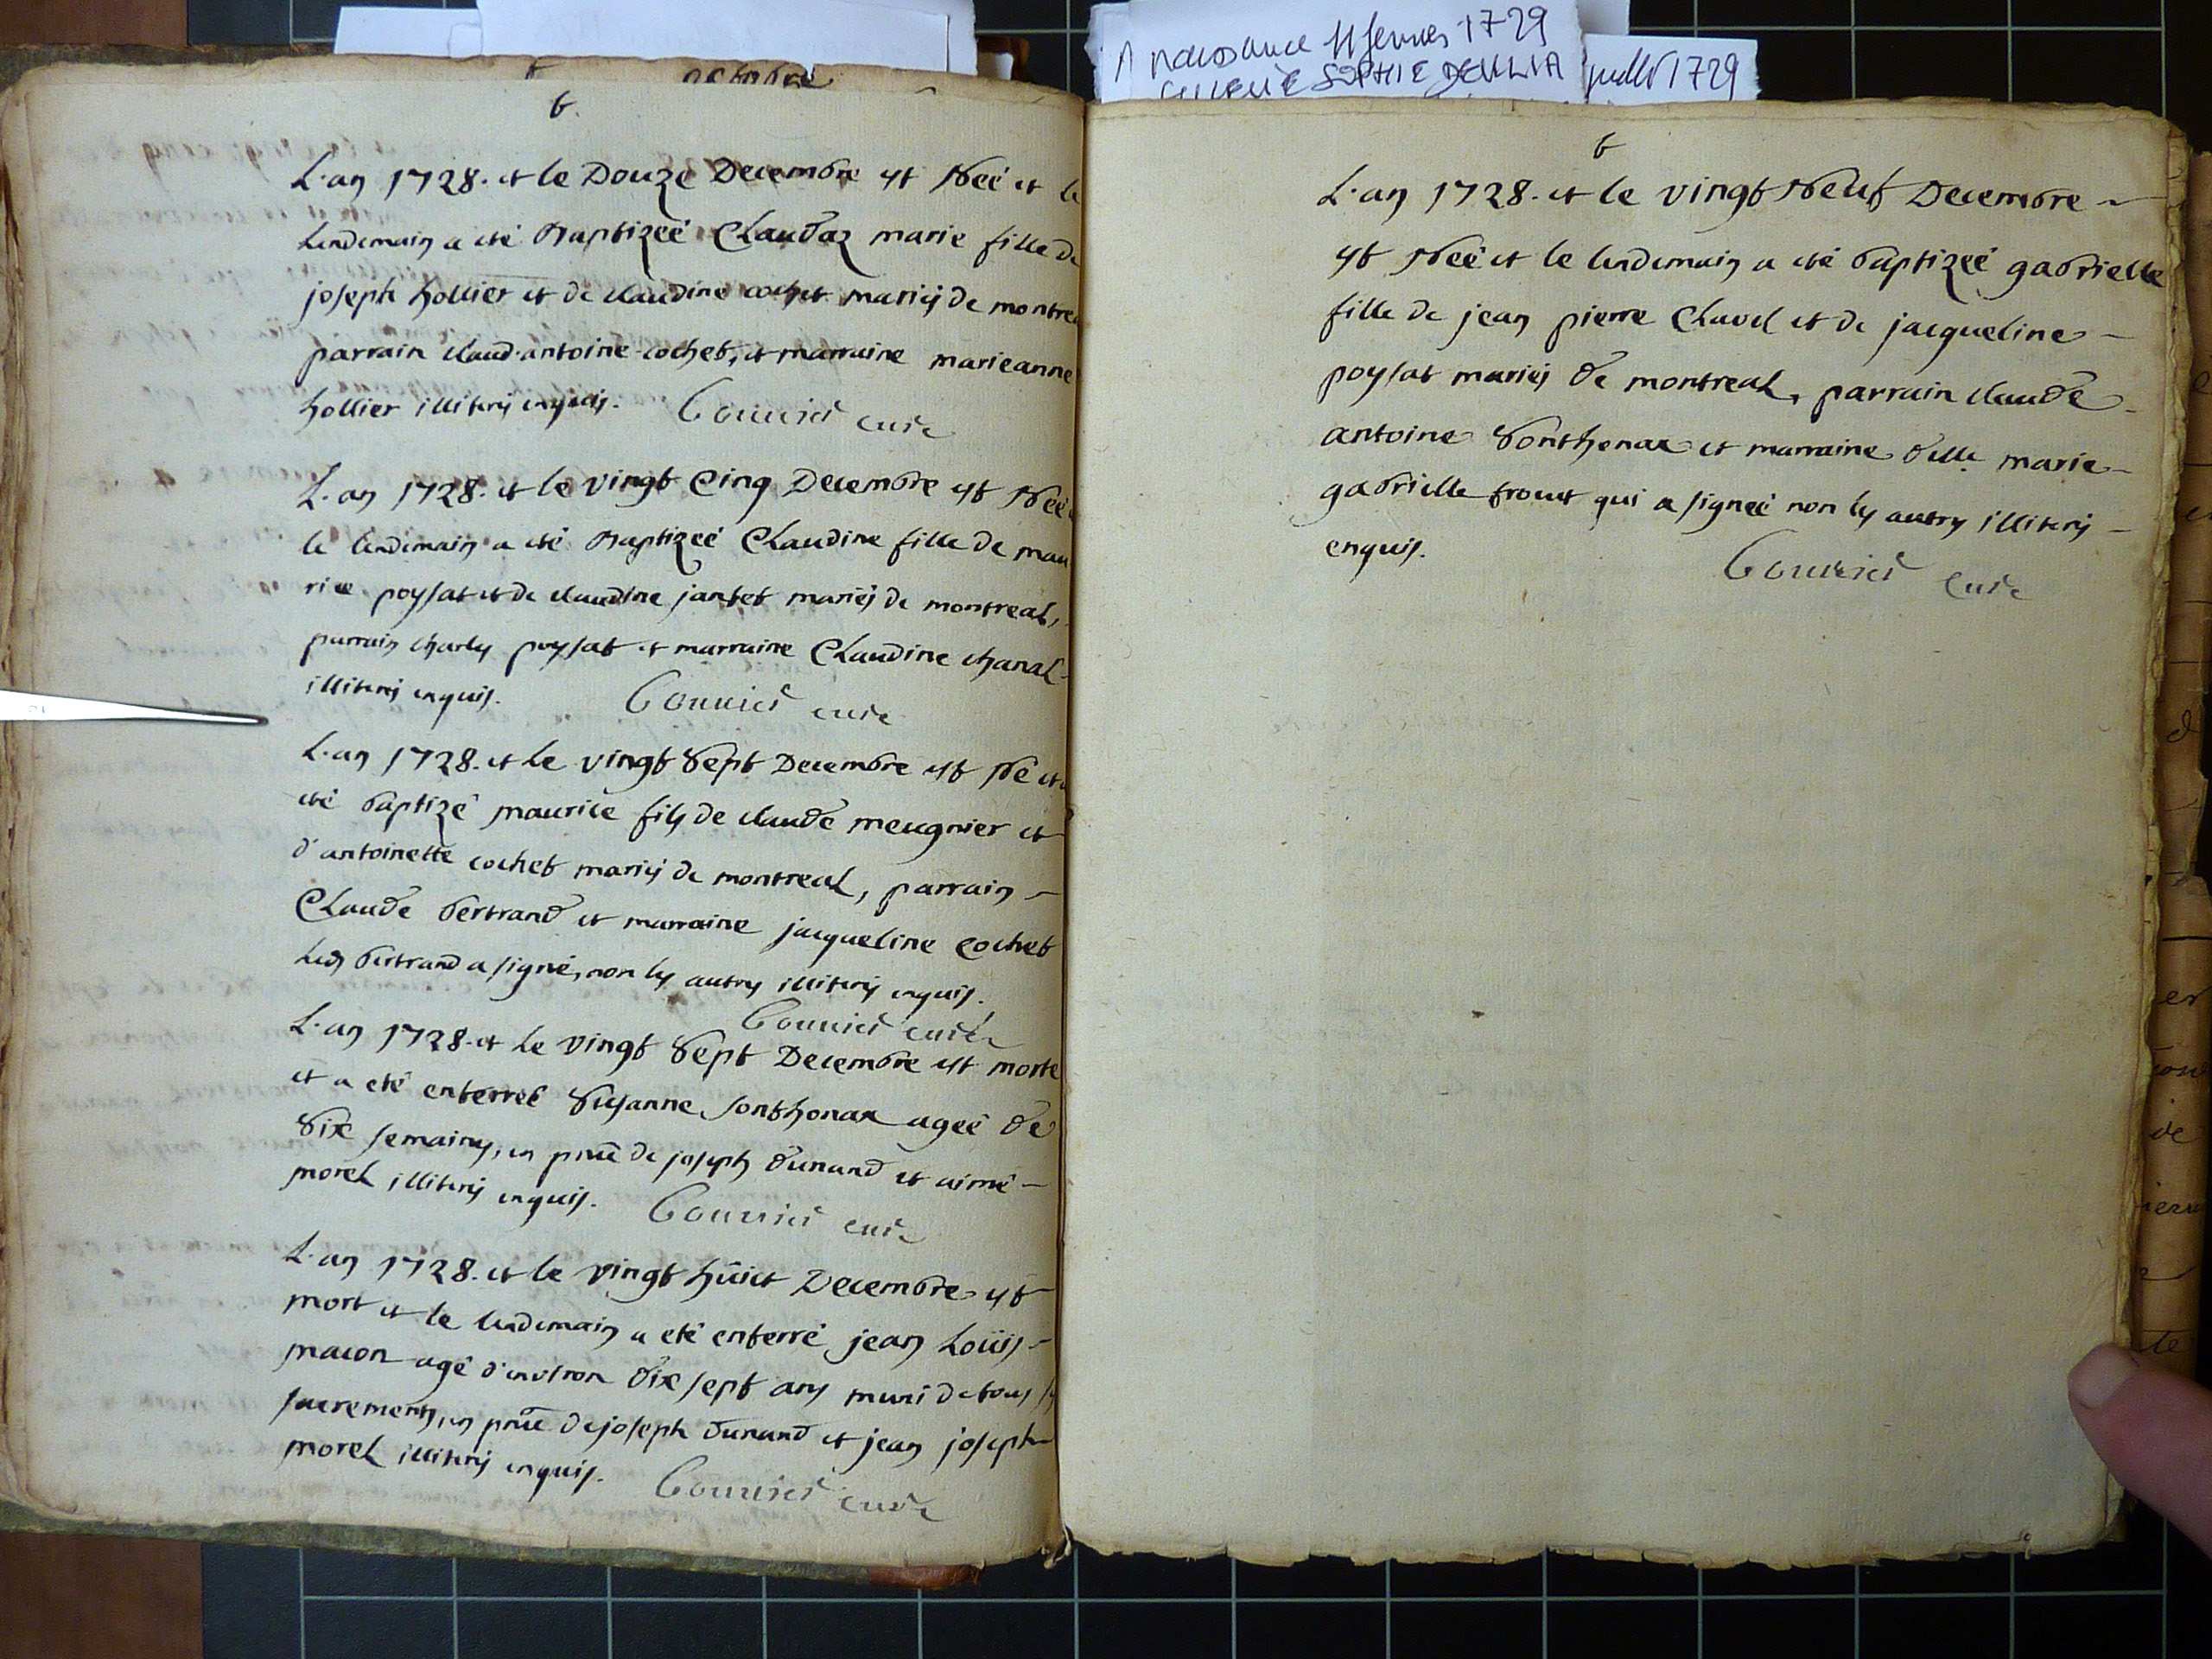 A naissance 11 fevrier 1729
SOPHIE
juillet 1729
octobre
6.
L'an 1728. et le Douze Decembre est Neé et le
lendemain a eté Baptizeé Claudaz marie fille de
joseph hollier et de claudine cochet mariés de montrea
parrain claud-antoine cochet, et marraine marieanne
hollier illiterés enquis. Couurier curé
L'an 1728. et le vingt Cinq Decembre est Neé
le lendemain a eté Baptizeé Claudine fille de mau
rice poysat et de claudine jantet mariés de montreal,
parrain charles poysat et marraine Claudine chanal
illiterés enquis. Couurier curé
L'an 1728. et le vingt Sept Decembre est Né et
eté baptizé maurice fils de claude meugnier et
d'antoinette cochet mariés de montreal, parrain
Claude bertrand et marraine jacqueline cochet
led bertrand a signé, non les autres illiterés enquis.
Couurier curé
L'an 1728. et le vingt Sept Decembre est morte
et a eté enterreé Susanne Sonthonax ageé de
Six semaines, en pñce de joseph dunand et aimé
morel illiterés enquis. Couurier curé
L'an 1728. et le vingt hüict Decembre est
mort et le lendemain a eté enterré jean Loüis
macon agé d'environ dix sept ans muni de tous
sacrements, en pñce de joseph dunand et jean joseph
morel illiterés enquis. Couurier curé
6
L'an 1728. et le vingt Neuf Decembre
est Neé et le lendemain a eté baptizeé gabrielle
fille de jean pierre Clavel et de jacqueline
poysat mariés de montreal, parrain claude
antoine Sonthonax et marraine delle marie
gabrielle trouet qui a signeé non les autres illiterés
enquis.
Couurier curé